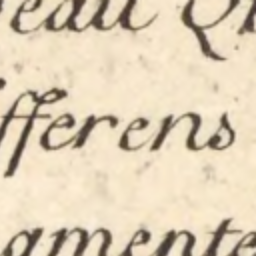 eau Q
fferens
amente